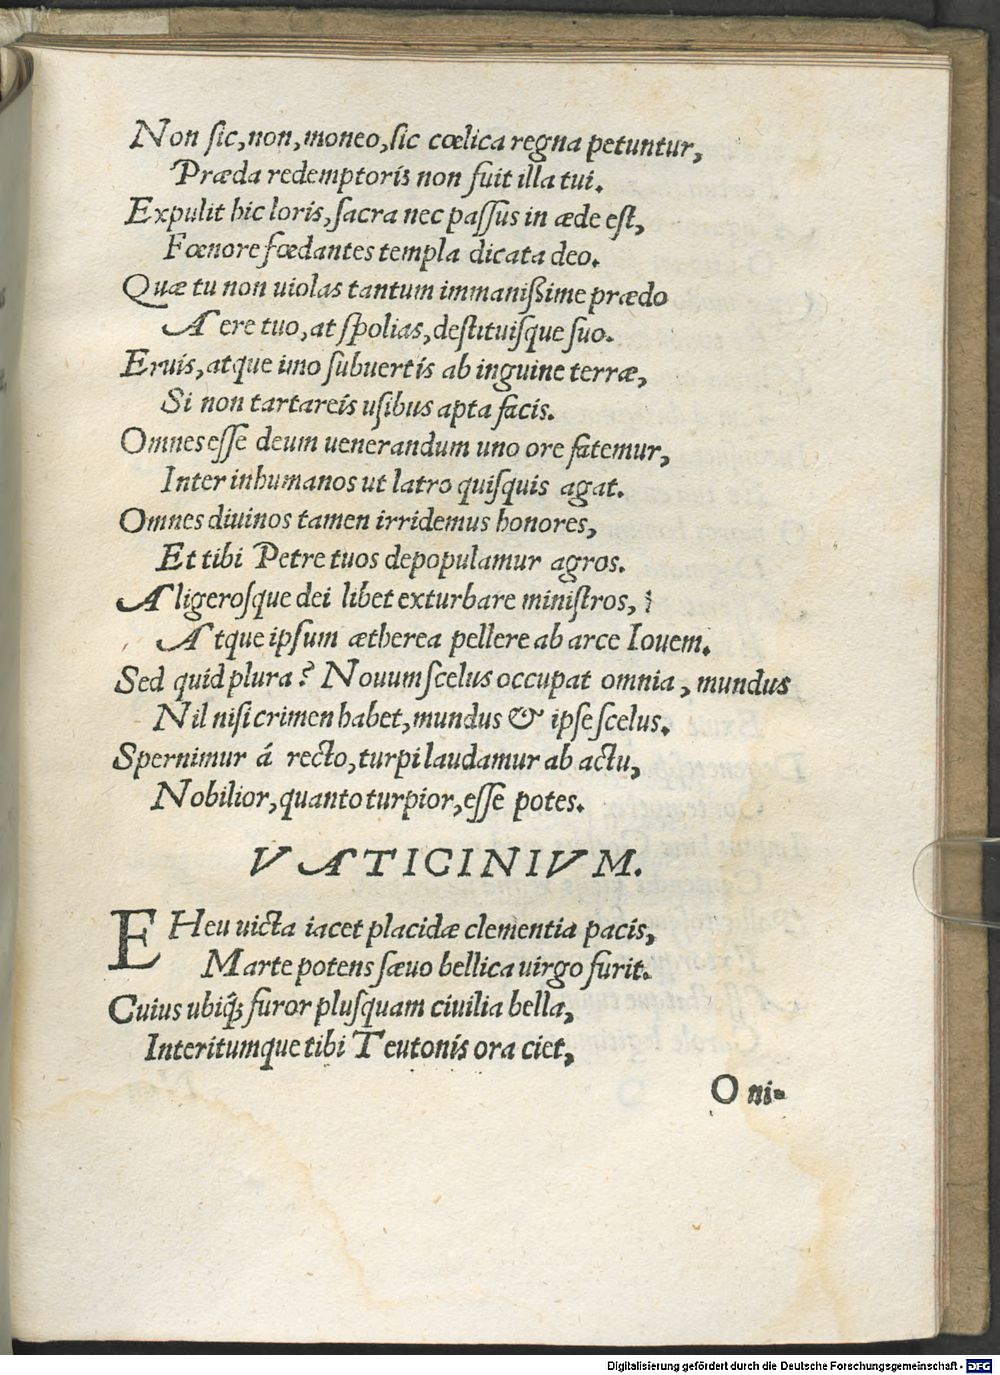 Non ſic, non, moneo, ſic cœlica regna petuntur,
Præda redemptoris non fuit illa tui.
Expulit hic loris, ſacra nec paſſus in æde eſt,
Fœnore fœdantes templa dicata deo.
Quæ tu non uiolas tantum immaniſsime prædo
Aere tuo, at ſpolias, deſtituiſque ſuo.
Eruis, atque imo ſubuertis ab inguine terræ,
Si non tartareis uſibus apta facis.
Omnes eſſe deum uenerandum uno ore fatemur,
Inter inhumanos ut latro quiſquis agat.
Omnes diuinos tamen irridemus honores,
Et tibi Petre tuos depopulamur agros.
Aligeroſque dei libet exturbare miniſtros,
Atque ipſum ætherea pellere ab arce Iouem.
Sed quid plura? Nouum ſcelus occupat omnia, mundus
Nil niſi crimen habet, mundus & ipſe ſcelus.
Spernimur á recto, turpi laudamur ab actu,
Nobilior, quanto turpior, eſſe potes.
VATICINIVM.
EHeu uicta iacet placidæ clementia pacis,
Marte potens ſæuo bellica uirgo furit.
Cuius ubiq̃ꝫ furor pluſquam ciuilia bella,
Interitumque tibi Teutonis ora ciet,
O ni-
Digitalisierung gefördert durch die Deutsche Forschungsgemeinschaft - DFG